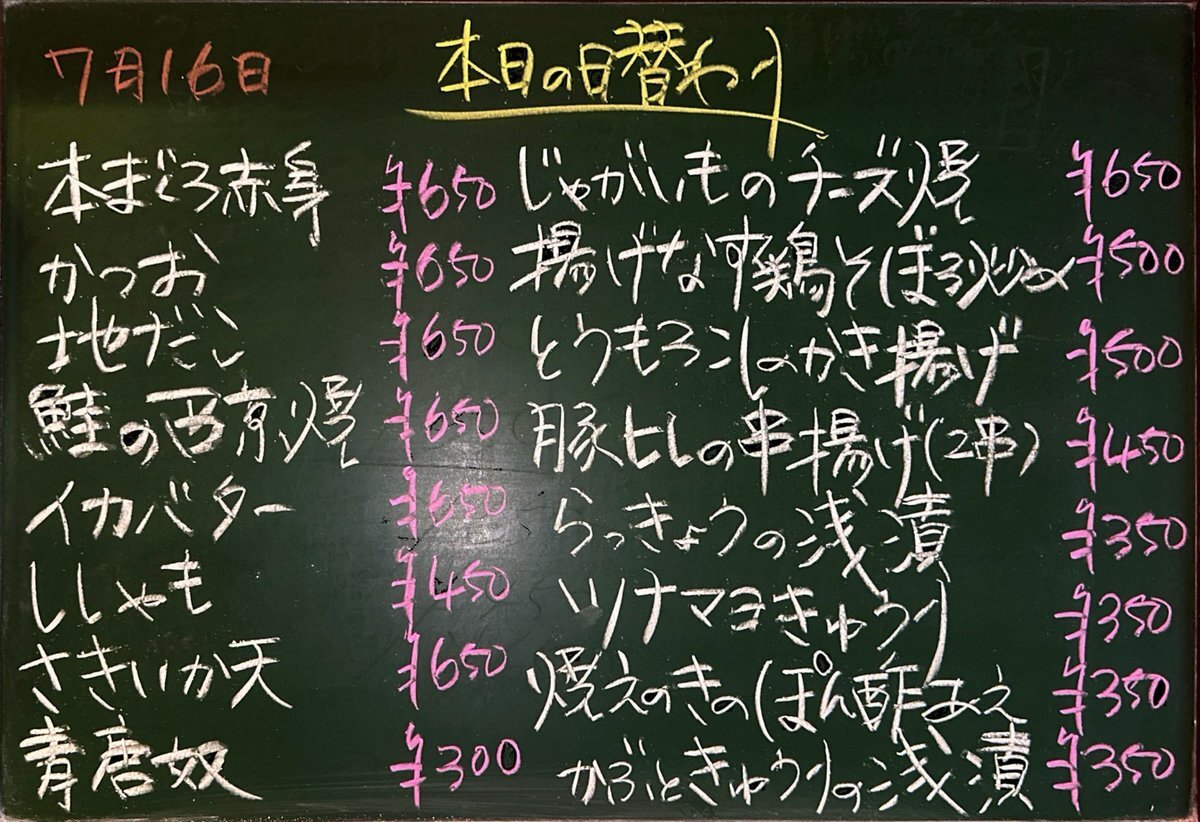 7月16日
本日の日替わり
本まぐろ赤身 ¥650
かつお ¥650
地だこ ¥650
鮭の西京焼 ¥650
イカバター ¥650
ししゃも ¥450
さきいか天 ¥650
青唐奴 ¥300
じゃがいものチーズ焼 ¥650
揚げなす鶏そぼろ炒め ¥500
とうもろこしのかき揚げ ¥500
豚ヒレの串揚げ(2串) ¥450
らっきょうの浅漬 ¥350
ツナマヨきゅうり ¥350
焼えのきのぽん酢あえ ¥350
かぶときゅうりの浅漬 ¥350